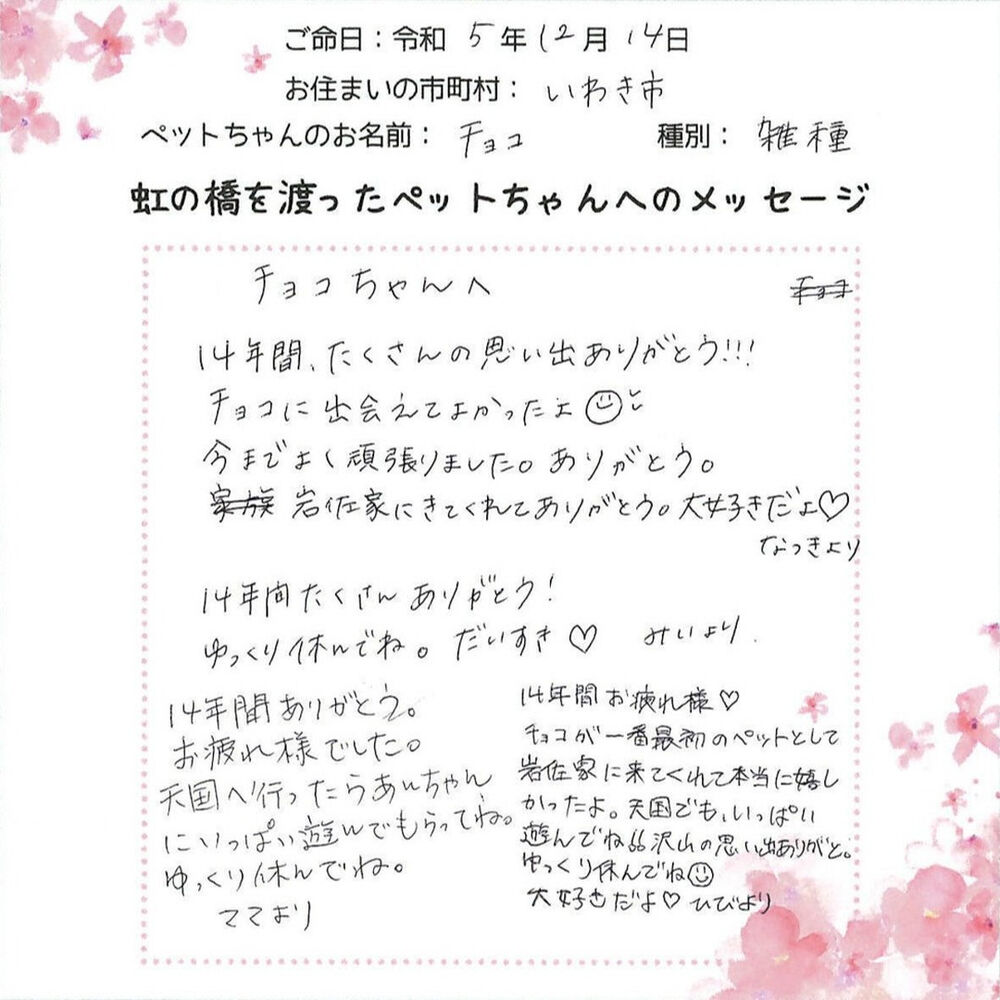 ご命日：令和 5年12月14日
お住まいの市町村： いわき市
ペットちゃんのお名前： チョコ 種別： 雑種
虹の橋を渡ったペットちゃんへのメッセージ
チョコちゃんへ チョコ
14年間、たくさんの思い出ありがとう!!!
チョコに出会えてよかったよ
今までよく頑張りました。ありがとう。
家族 岩佐家にきてくれてありがとう。大好きだよ♡
なつきより
14年間たくさんありがとう!
ゆっくり休んでね。だいすき♡ みいより.
14年間ありがとう。
お疲れ様でした。
天国へ行ったらあいちゃん
にいっぱい遊んでもらってね。
ゆっくり休んでね。
ママより
14年間お疲れ様♡
チョコが一番最初のペットとして
岩佐家に来てくれて本当に嬉し
かったよ。天国でも、いっぱい
遊んでね 沢山の思い出ありがと。
ゆっくり休んでね
大好きだよ♡ ひびより